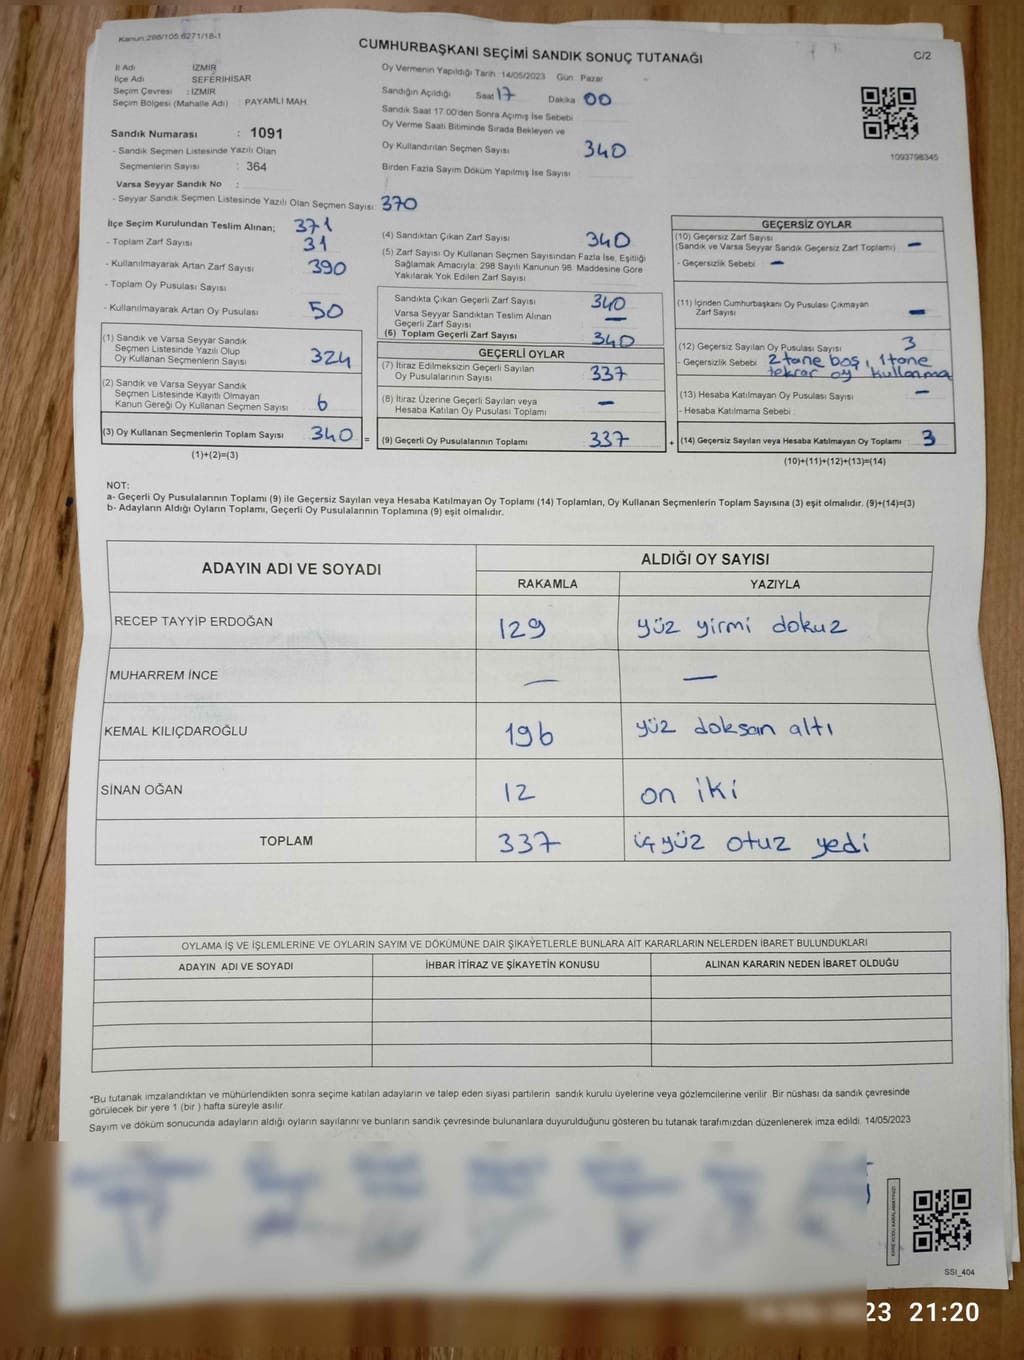 Kanun:298/105.6271/18-1
CUMHURBAŞKANI SEÇİMİ SANDIK SONUÇ TUTANAĞI
C/2
İl Adı : İZMİR
İlçe Adı : SEFERİHİSAR
Seçim Çevresi : İZMİR
Seçim Bölgesi (Mahalle Adı) : PAYAMLI MAH.
Sandık Numarası : 1091
- Sandık Seçmen Listesinde Yazılı Olan
Seçmenlerin Sayısı : 364
Varsa Seyyar Sandık No :
- Seyyar Sandık Seçmen Listesinde Yazılı Olan Seçmen Sayısı: 370
Oy Vermenin Yapıldığı Tarih : 14/05/2023 Gün : Pazar
Sandığın Açıldığı Saat 17 Dakika 00
Sandık Saat 17.00'den Sonra Açımış İse Sebebi
Oy Verme Saati Bitiminde Sırada Bekleyen ve
Oy Kullandırılan Seçmen Sayısı 340
Birden Fazla Sayım Döküm Yapılmış İse Sayısı
1093798345
İlçe Seçim Kurulundan Teslim Alınan; 371
- Toplam Zarf Sayısı 31
- Kullanılmayarak Artan Zarf Sayısı 390
- Toplam Oy Pusulası Sayısı
- Kullanılmayarak Artan Oy Pusulası 50
(1) Sandık ve Varsa Seyyar Sandık
Seçmen Listesinde Yazılı Olup
Oy Kullanan Seçmenlerin Sayısı 324
(2) Sandık ve Varsa Seyyar Sandık
Seçmen Listesinde Kayıtlı Olmayan
Kanun Gereği Oy Kullanan Seçmen Sayısı 6
(3) Oy Kullanan Seçmenlerin Toplam Sayısı 340 =
(1)+(2)=(3)
(4) Sandıktan Çıkan Zarf Sayısı 340
(5) Zarf Sayısı Oy Kullanan Seçmen Sayısından Fazla İse, Eşitliği
Sağlamak Amacıyla: 298 Sayılı Kanunun 98. Maddesine Göre
Yakılarak Yok Edilen Zarf Sayısı
Sandıkta Çıkan Geçerli Zarf Sayısı 340
Varsa Seyyar Sandıktan Teslim Alınan
Geçerli Zarf Sayısı —
(6) Toplam Geçerli Zarf Sayısı 340
GEÇERLİ OYLAR
(7) İtiraz Edilmeksizin Geçerli Sayılan
Oy Pusulalarının Sayısı 337
(8) İtiraz Üzerine Geçerli Sayılan veya
Hesaba Katılan Oy Pusulası Toplamı —
(9) Geçerli Oy Pusulalarının Toplamı 337 +
GEÇERSİZ OYLAR
(10) Geçersiz Zarf Sayısı
(Sandık ve Varsa Seyyar Sandık Geçersiz Zarf Toplamı) —
- Geçersizlik Sebebi : —
(11) İçinden Cumhurbaşkanı Oy Pusulası Çıkmayan
Zarf Sayısı —
(12) Geçersiz Sayılan Oy Pusulası Sayısı 3
- Geçersizlik Sebebi 2 tane boş, 1 tane
tekrar oy kullanma
(13) Hesaba Katılmayan Oy Pusulası Sayısı —
- Hesaba Katılmama Sebebi :
(14) Geçersiz Sayılan veya Hesaba Katılmayan Oy Toplamı 3
(10)+(11)+(12)+(13)=(14)
NOT:
a- Geçerli Oy Pusulalarının Toplamı (9) ile Geçersiz Sayılan veya Hesaba Katılmayan Oy Toplamı (14) Toplamları, Oy Kullanan Seçmenlerin Toplam Sayısına (3) eşit olmalıdır. (9)+(14)=(3)
b- Adayların Aldığı Oyların Toplamı, Geçerli Oy Pusulalarının Toplamına (9) eşit olmalıdır.
ADAYIN ADI VE SOYADI
ALDIĞI OY SAYISI
RAKAMLA YAZIYLA
RECEP TAYYİP ERDOĞAN 129 yüz yirmi dokuz
MUHARREM İNCE — —
KEMAL KILIÇDAROĞLU 196 yüz doksan altı
SİNAN OĞAN 12 on iki
TOPLAM 337 üçyüz otuz yedi
OYLAMA İŞ VE İŞLEMLERİNE VE OYLARIN SAYIM VE DÖKÜMÜNE DAİR ŞİKAYETLERLE BUNLARA AİT KARARLARIN NELERDEN İBARET BULUNDUKLARI
ADAYIN ADI VE SOYADI İHBAR İTİRAZ VE ŞİKAYETİN KONUSU ALINAN KARARIN NEDEN İBARET OLDUĞU
*Bu tutanak imzalandıktan ve mühürlendikten sonra seçime katılan adayların ve talep eden siyasi partilerin sandık kurulu üyelerine veya gözlemcilerine verilir. Bir nüshası da sandık çevresinde
görülecek bir yere 1 (bir ) hafta süreyle asılır.
Sayım ve döküm sonucunda adayların aldığı oyların sayılarını ve bunların sandık çevresinde bulunanlara duyurulduğunu gösteren bu tutanak tarafımızdan düzenlenerek imza edildi. 14/05/2023
SSI_404
23 21:20